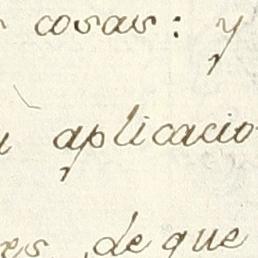 cosas: y
aplicacio
de que